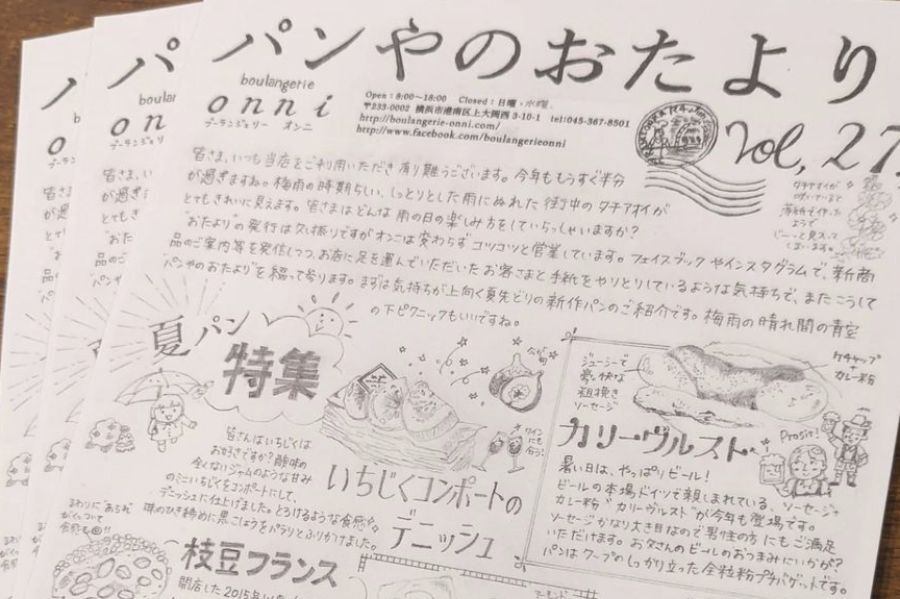 パンやのおたより
boulangerie
onni
ブーランジェリー オンニ
Open : 8:00〜18:00 Closed : 日曜、水曜、
〒233-0002 横浜市港南区上大岡西 3-10-1 tel:045-367-8501
http://boulangerie-onni.com/
http://www.facebook.com/boulangerieonni
Vol, 27
皆さま、いつも当店をご利用いただき有り難うございます。今年ももうすぐ半分
が過ぎますね。梅雨の時期らしい、しっとりとした雨にぬれた街中のタチアオイが
とてもきれいに見えます。皆さまはどんな雨の日の楽しみ方をしていらっしゃいますか?
"おたより"の発行は久し振りですがオンニは変わらずコツコツと営業しています。フェイスブックやインスタグラムで、新商
品のご案内等を発信しつつ、お店に足を運んでいただいたお客さまと手紙をやりとりしているような気持ちで、またこうして
"パンやのおたより"を綴って参ります。まずは気持ちが上向く夏先どりの新作パンのご紹介です。梅雨の晴れ間の青空
の下ピクニックもいいですね。
タチアオイが
咲いていると
ようで
じーっと見入って
しまいます。
夏パン
特集
今が旬
ワイン
にも
合う!
皆さんはいちじくは
お好きですか?酸味の
全くないジャムのような甘み
のミニいちじくをコンポートにして、
デニッシュに仕上げました。とろけるような食感を。
味のひき締めに黒こしょうをパラリとふりかけました。
いちじくコンポートの
デニッシュ
ジューシーで
豪快な
粗挽き
ソーセージ
ケチャップ
+
カレー粉
Prosit!
カリーヴルスト
暑い日は、やっぱりビール!
ビールの本場ドイツで親しまれている、ソーセージ×
カレー粉"カリーヴルスト"が今年も登場です。
ソーセージがなり大き目なので男性の方にもご満足
いただけます。お父さんのビールのおつまみにいかが?
パンはクープのしっかり立った全粒粉プチバゲットです。
枝豆フランス
開店した2015年